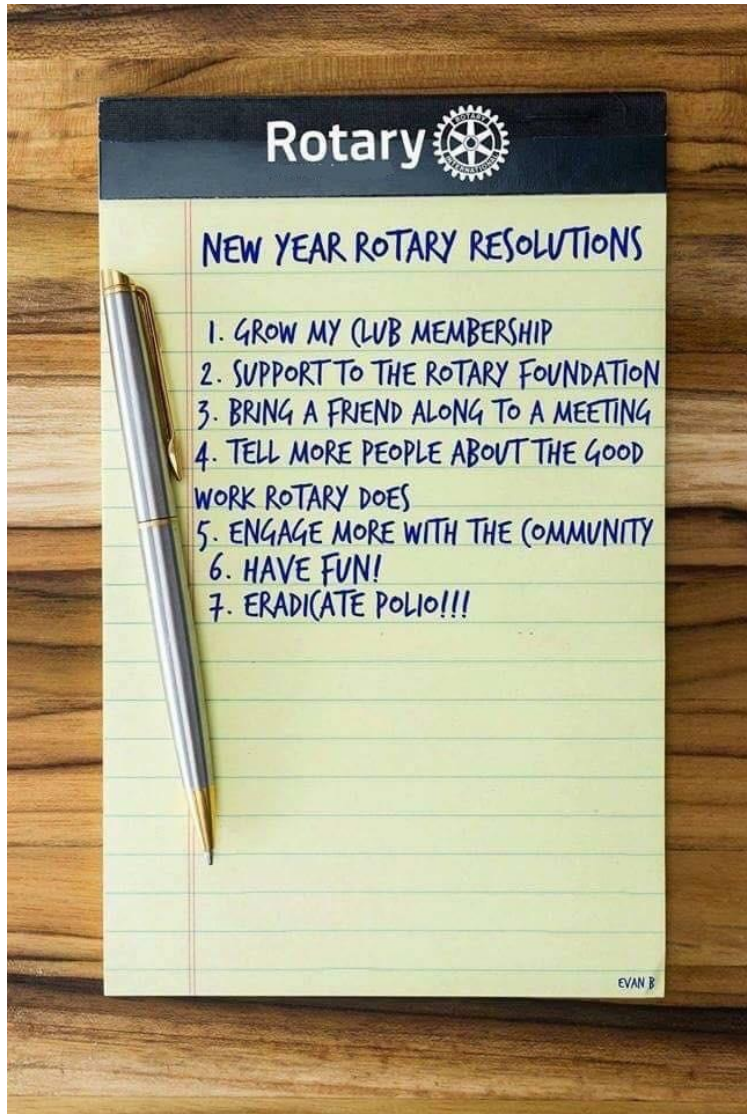 Rotary
ROTARY
INTERNATIONAL
NEW YEAR ROTARY RESOLUTIONS
1. GROW MY CLUB MEMBERSHIP
2. SUPPORT TO THE ROTARY FOUNDATION
3. BRING A FRIEND ALONG TO A MEETING
4. TELL MORE PEOPLE ABOUT THE GOOD
WORK ROTARY DOES
5. ENGAGE MORE WITH THE COMMUNITY
6. HAVE FUN!
7. ERADICATE POLIO!!!
EVAN B